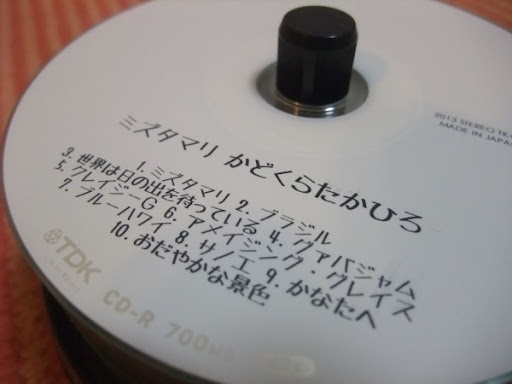 2013 STEREO
MADE IN JAPAN
ミズタマリ かどくらたかひろ
1. ミズタマリ 2. ブラジル
3. 世界は日の出を待っている 4. グァバジャム
5. クレイジーG 6. アメイジング・グレイス
7. ブルーハワイ 8. サノエ 9. かなたへ
10. おだやかな景色
TDK CD-R 700MB